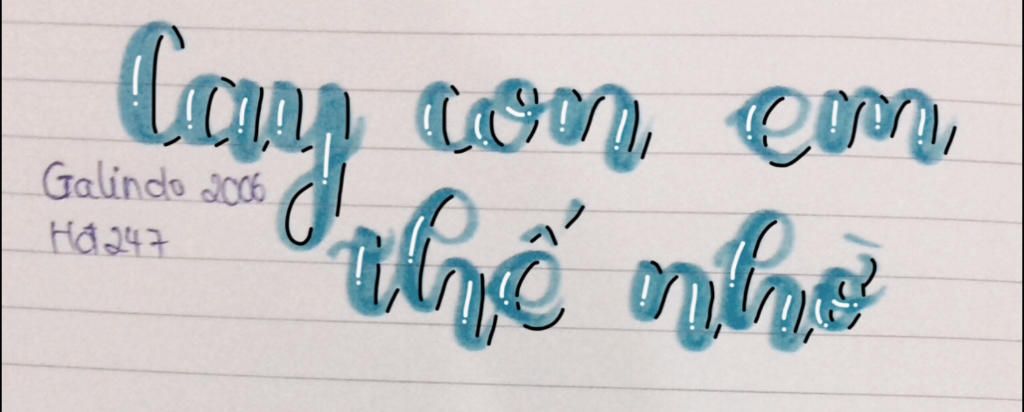 Cay con em
Galindo 2006
thế nhờ